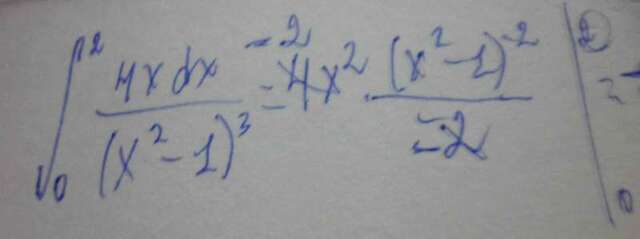 ∫₀² 4xdx / (x² - 1)³ = 4x² · (x² - 1)⁻² / -2 |₀² =
= 2